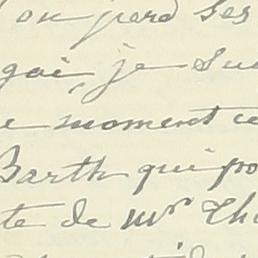 on perd ses
gai, je sui
e moment ce
Barth qui po
te de Mr Th